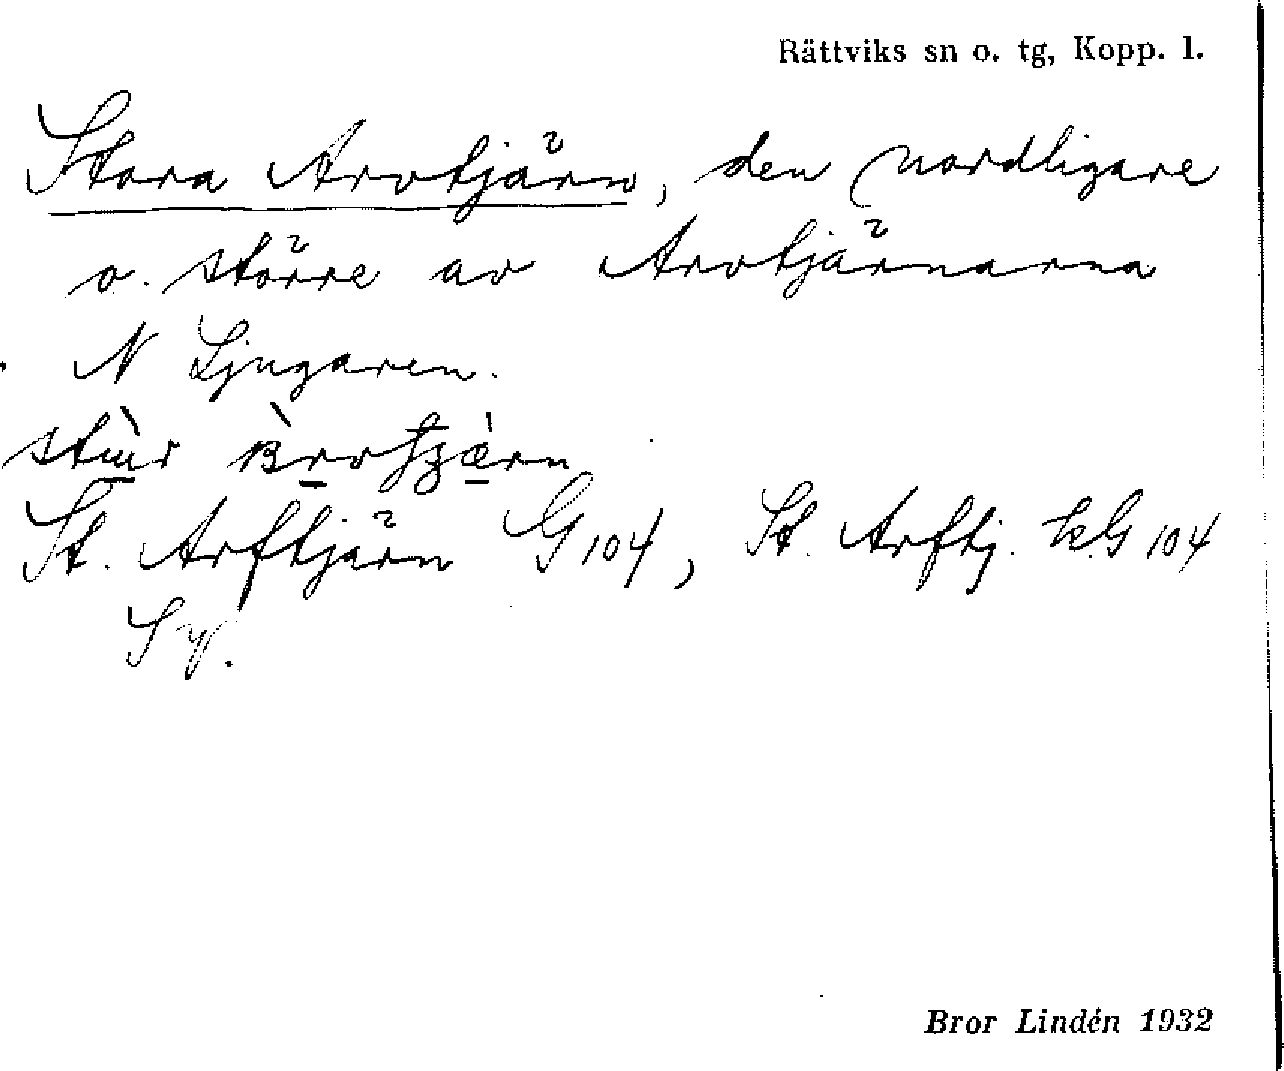 Rättviks sn o. tg, Kopp. l.
Stora Arvtjärn, den nordligare
o. större av Arvtjärnarna
N Ljugaren.
St. Arftjärn G 104, St. Arftj. k.G 104
Bror Lindén 1932